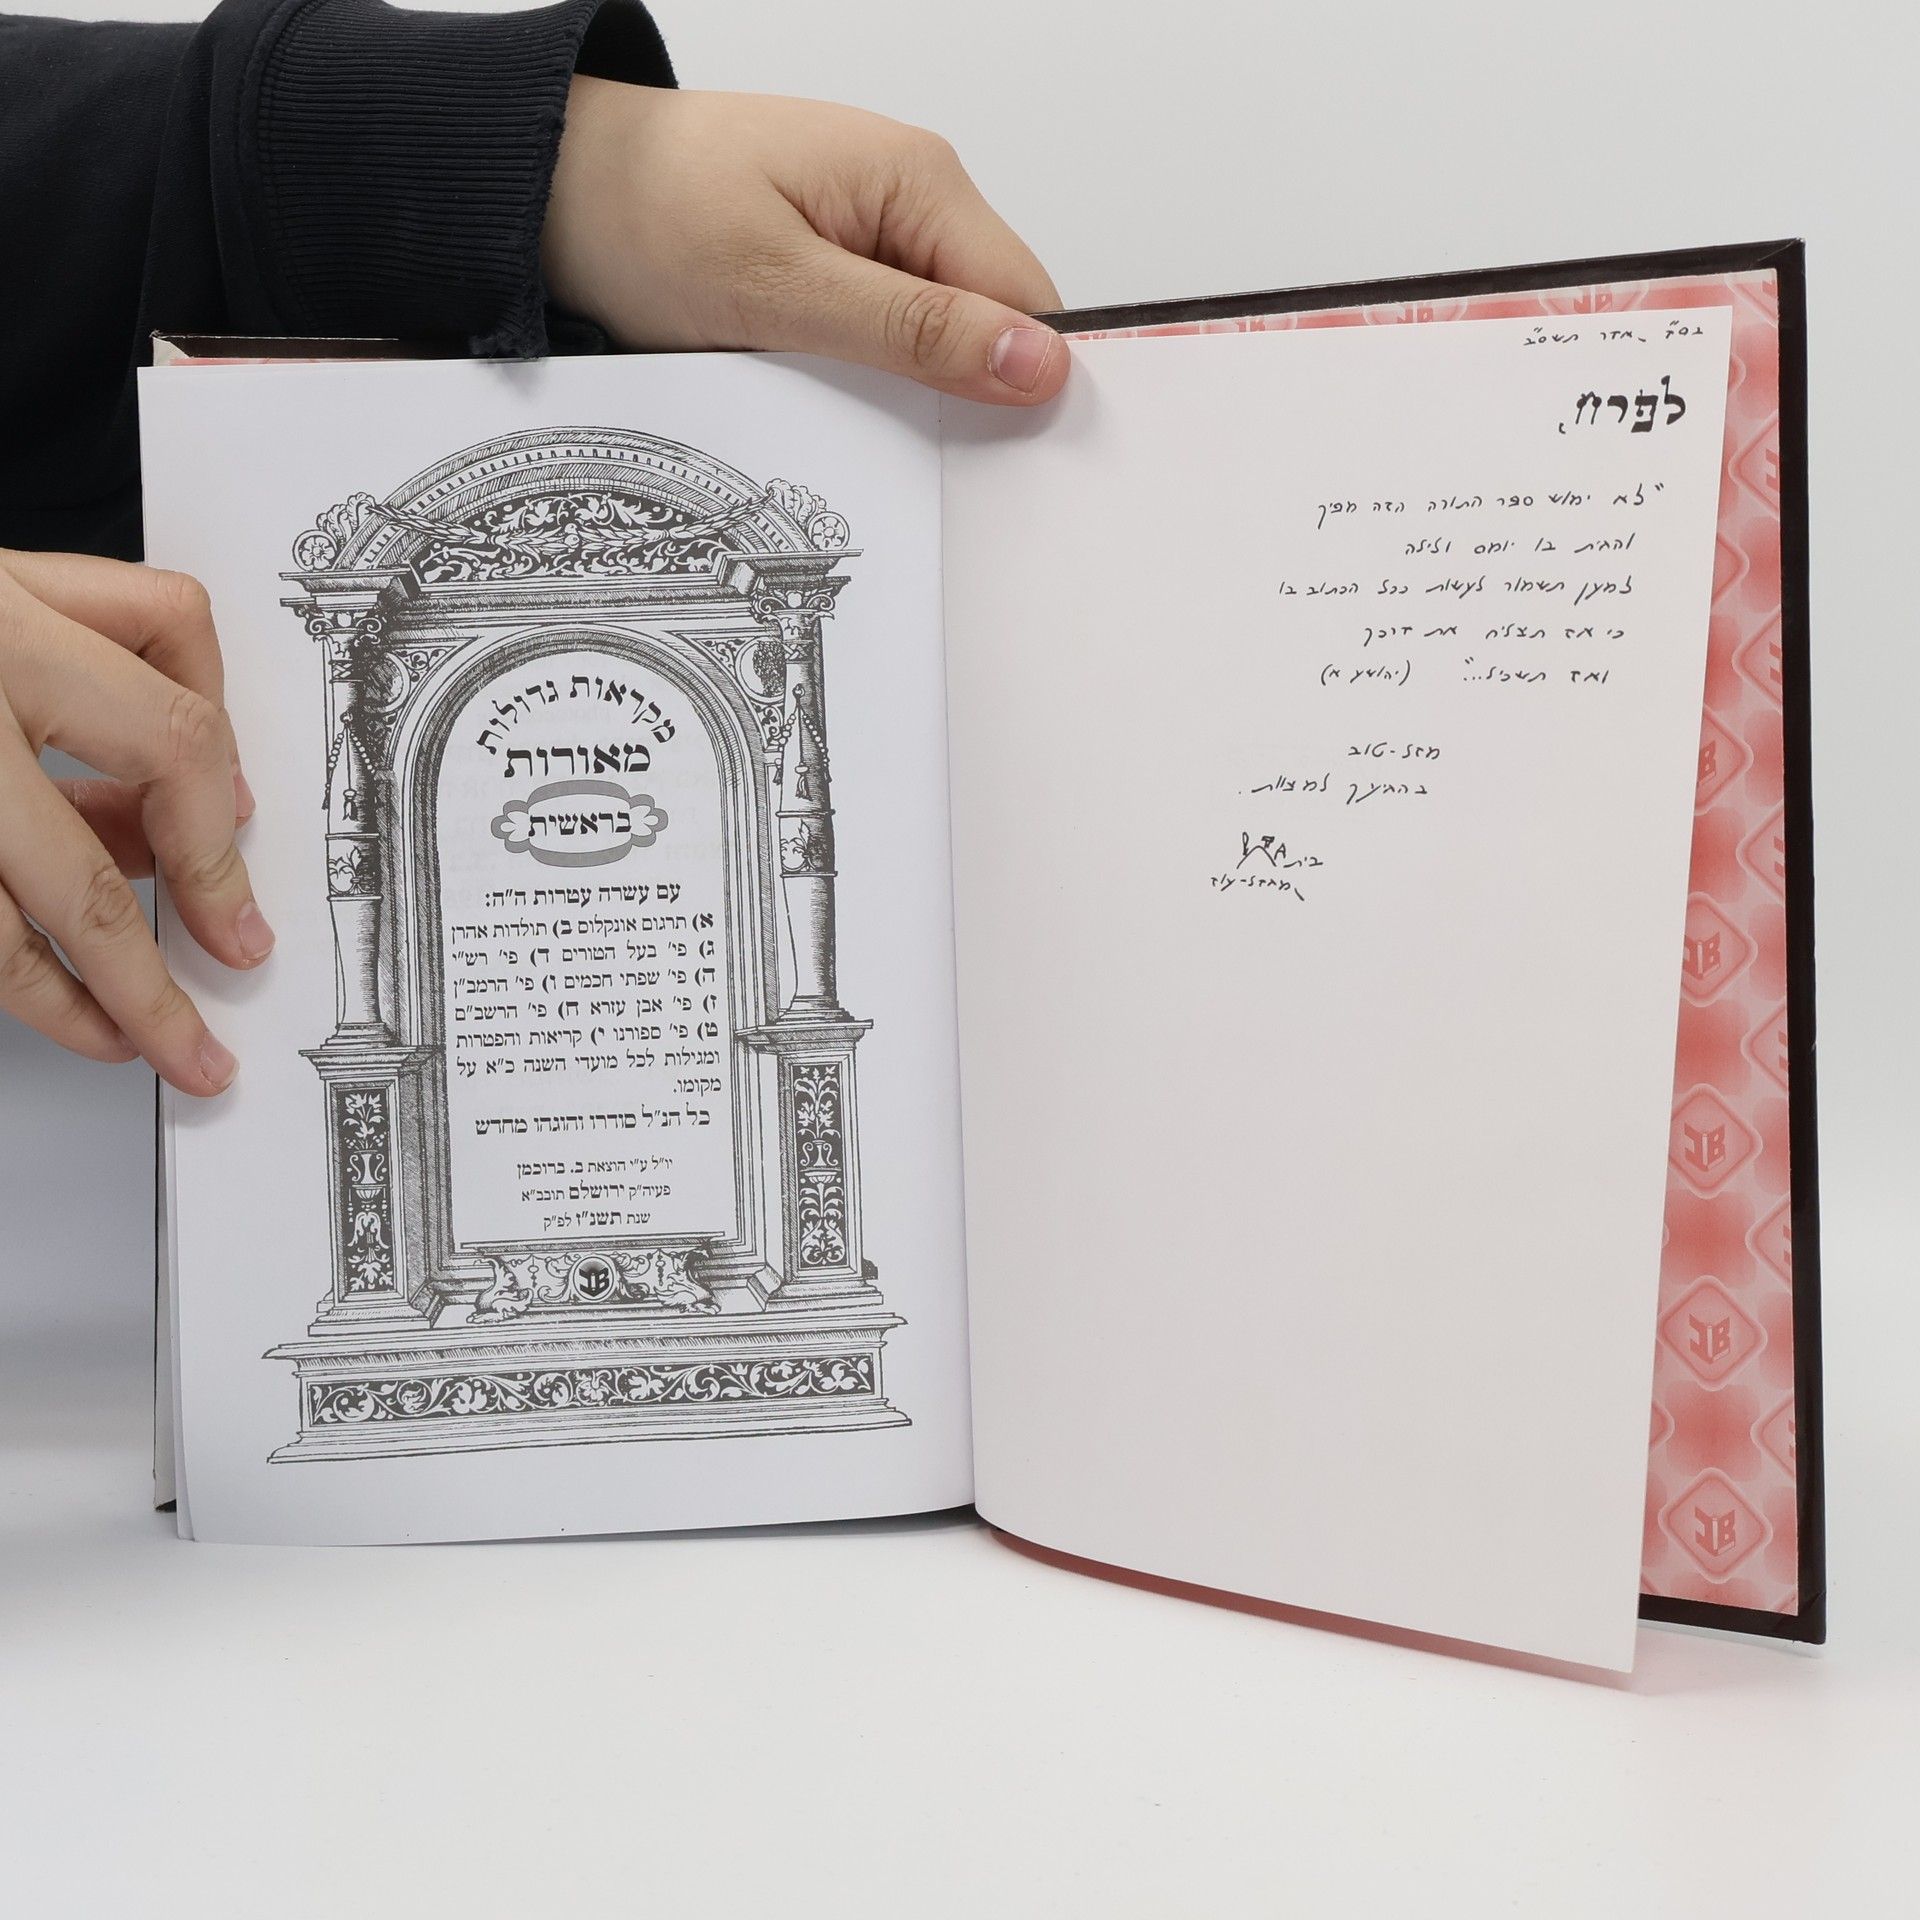 בס"ד אדר תשס"ב
לפרח,
"לא ימוש ספר התורה הזה מפיך
והגית בו יומם ולילה
למען תשמור לעשות ככל הכתוב בו
כי אז תצליח את דרכך
ואז תשכיל..." (יהושע א)
מזל-טוב
בהגיעך למצוות.
בית
מגדל-עוז
מקראות גדולות
מאורות
בראשית
עם עשרה עטרות ה"ה:
א) תרגום אונקלוס ב) תולדות אהרן
ג) פי' בעל הטורים ד) פי' רש"י
ה) פי' שפתי חכמים ו) פי' הרמב"ן
ז) פי' אבן עזרא ח) פי' הרשב"ם
ט) פי' ספורנו י) קריאות והפטרות
ומגילות לכל מועדי השנה כ"א על
מקומו.
כל הנ"ל סודרו והוגהו מחדש
יו"ל ע"י הוצאת ב. ברוכמן
פעיה"ק ירושלם תובב"א
שנת תשנ"ז לפ"ק
JB
JB
JB
JB
JB